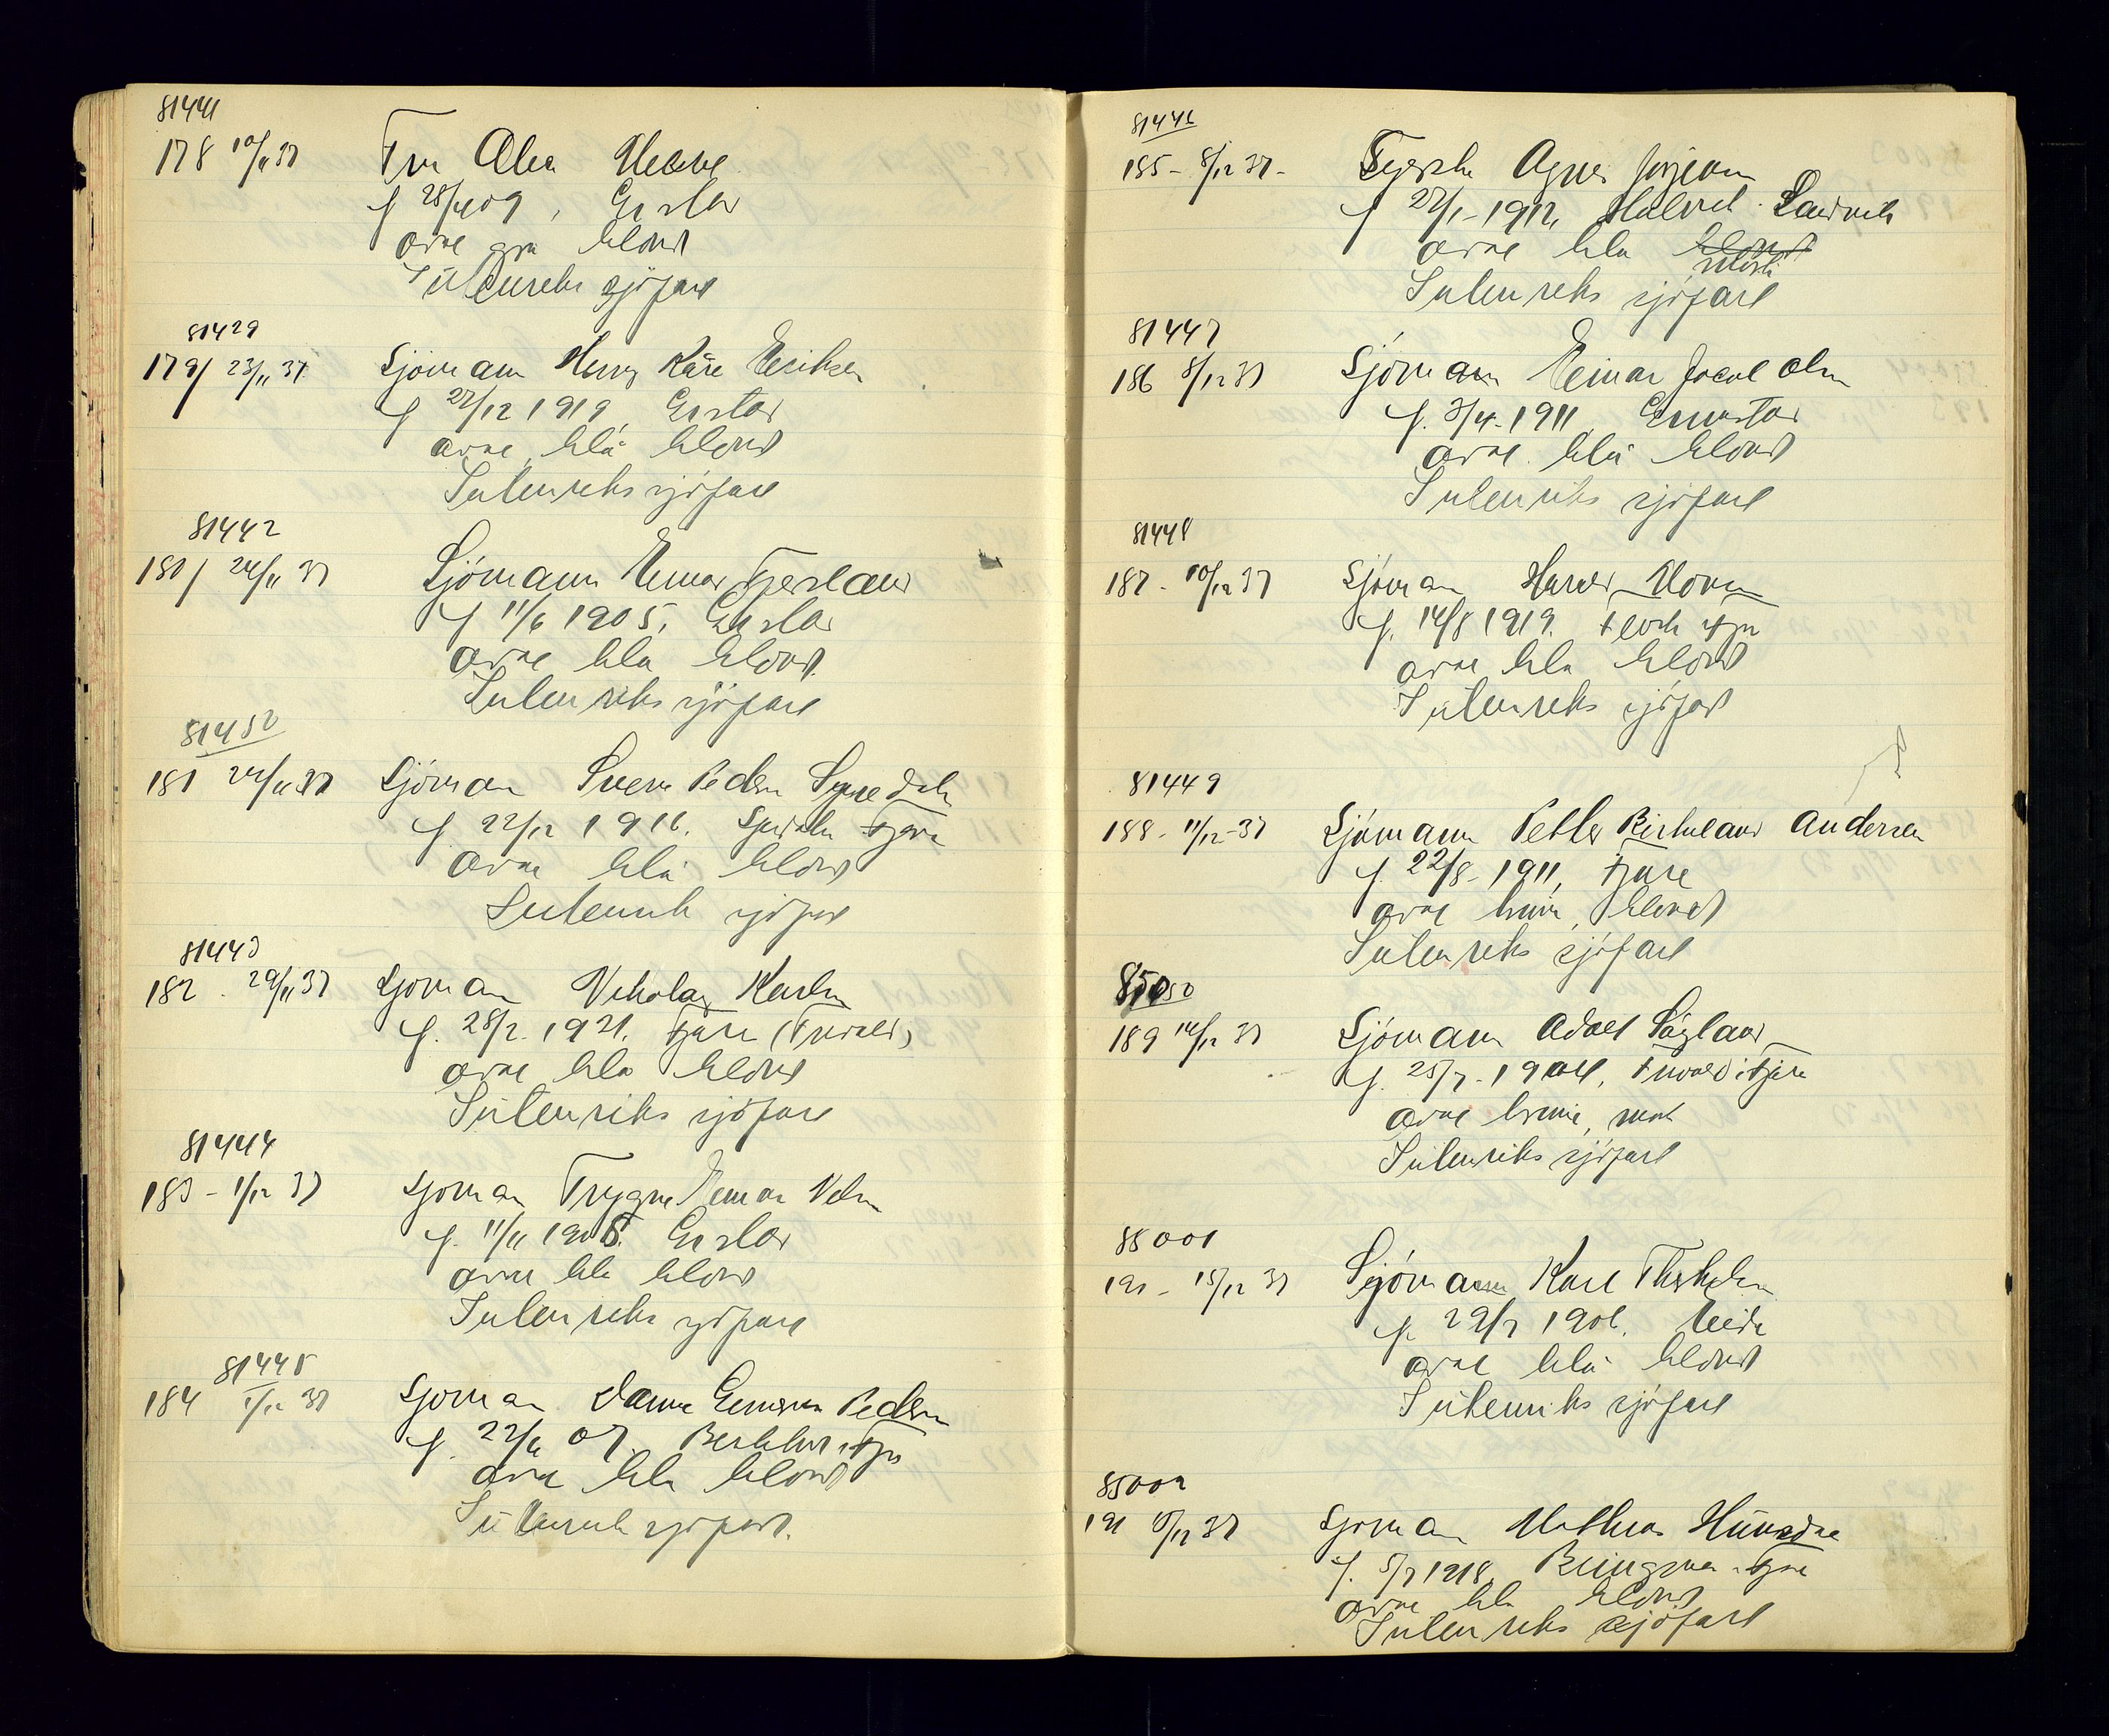 81441
178 10/11 37 Fru Olea
f 28/4 09, Grstad
øine grå blond
Utenriks sjöfart
81429
179/ 23/11 37 Sjömann Henry Kåre Eriksen
f 27/12 1919 Grstad
øine blå blond
Utenriks sjöfart
81442
180/ 24/11 37 Sjömann Einar Fjerslaus
f 11/6 1905, Grstad
øine blå blond
Utenriks sjöfart
81450
181 24/11 37 Sjöman Sverre Pedersen
f 22/12 1916. Fjære
øine blå blond
Utenriks sjöfart
81443
182 29/11 37 Sjöman Nikolay Karlsen
f. 28/2. 1921. Fjære (Trivold)
øine blå blond
Utenriks sjöfart
81444
183 - 1/12 37 Sjöman Trygve Einar Nilsen
f. 11/11 1905. Grstad
øine blå blond
Utenriks sjöfart
81445
184 1/12 37 Sjöman Pedersen
f. 22/6 07. i Fjære
øine blå blond
Utenriks sjöfart.
81446
185 - 8/12 37 - Agnes Jörgensen
f 27/1 - 1912, Landvik
øine blå blond
mörk
Utenriks sjöfart
81447
186 8/12 37 Sjöman Einar Jacob Olsen
f. 3/4 - 1911 Grimstad
øine blå blond
Utenriks sjöfart
81448
187 - 10/12 37 Sjöman Harald Moren
f. 14/8 1919. Fjære
øine blå blond
Utenriks sjöfart
81449
188 - 11/12 - 37 Sjömann Petter Birkeland Andersen
f. 22/8 - 1911, Fjære
øine brun, blond
Utenriks sjöfart
189 14/12 37 Sjömann Adolf
f. 25/7 - 1904, i Fjære
øine brune, mörk
Utenriks sjöfart
85001
190 - 15/12 37 Sjömann Karl Therkelsen
f. 29/7 1906. Eide
øine blå blond
Utenriks sjöfart
85002
191 15/12 37 Sjöman Mathias
f. 5/7 1918. i Fjære
øine blå blond
Utenriks sjöfart